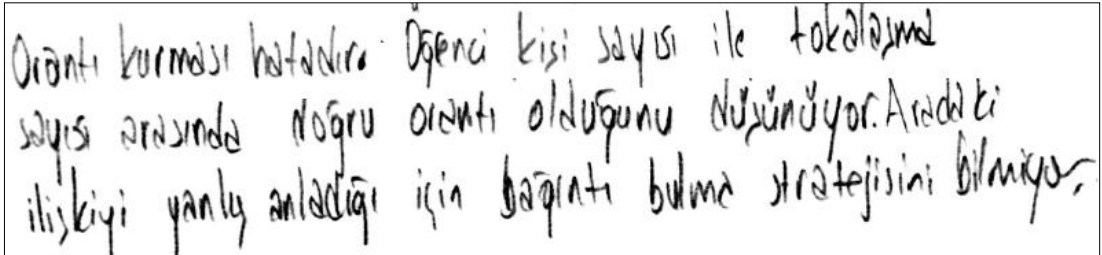 Orantı kurması hatadır. Öğenci kişi sayısı ile tokalaşma
sayısı arasında doğru orantı olduğunu düşünüyor. Aradaki
ilişkiyi yanlış anladığı için bağıntı bulma stratejisini bilmiyor.